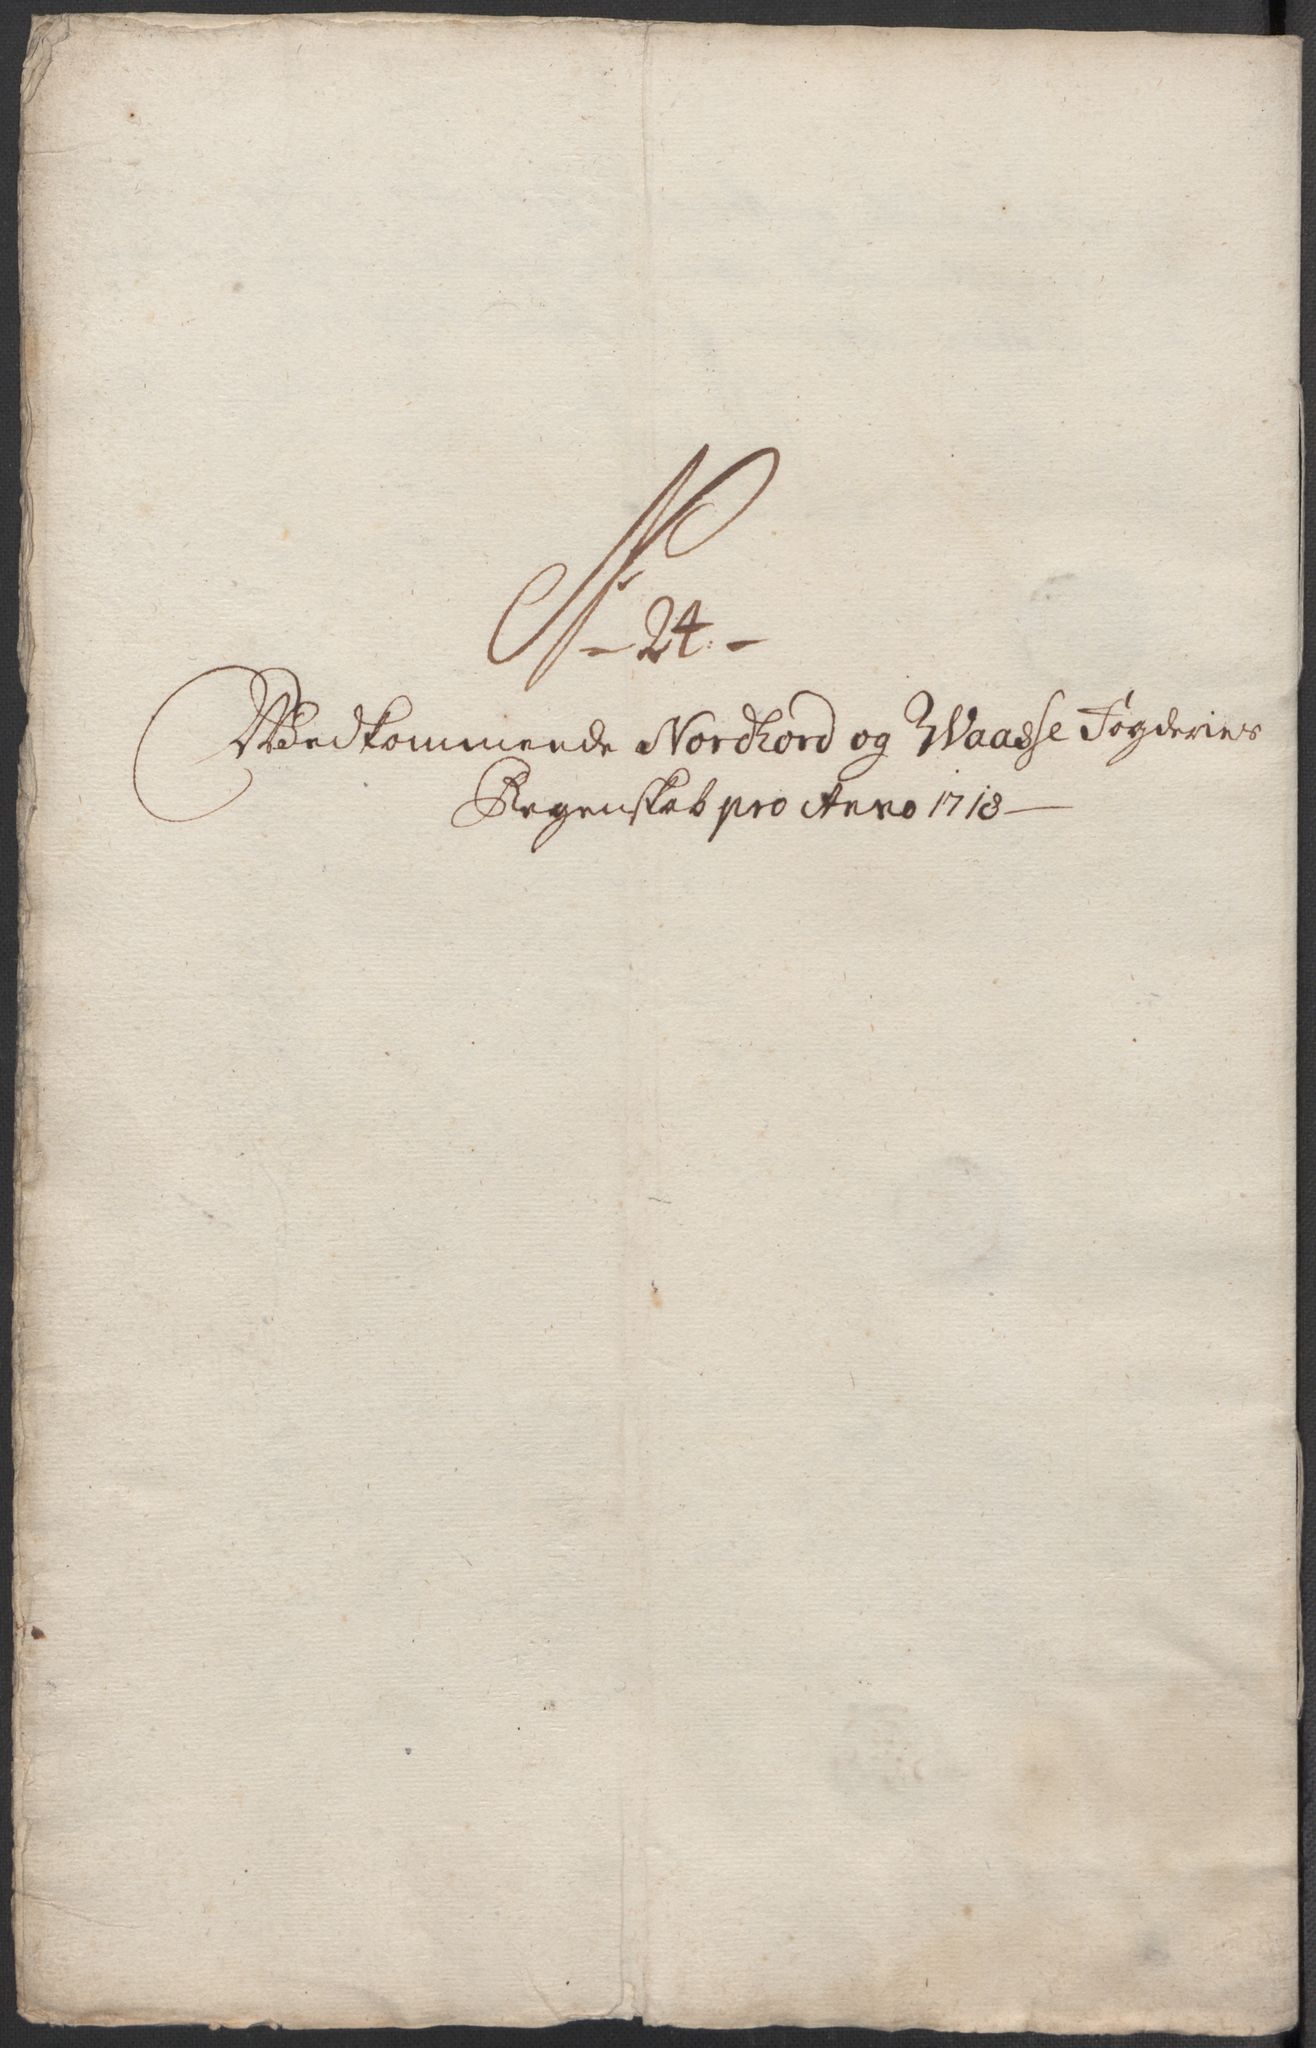 N
- 24. -
Wedkommende Nordhord og Waasse Fogderies
Regenskab pro Anno 1718 -